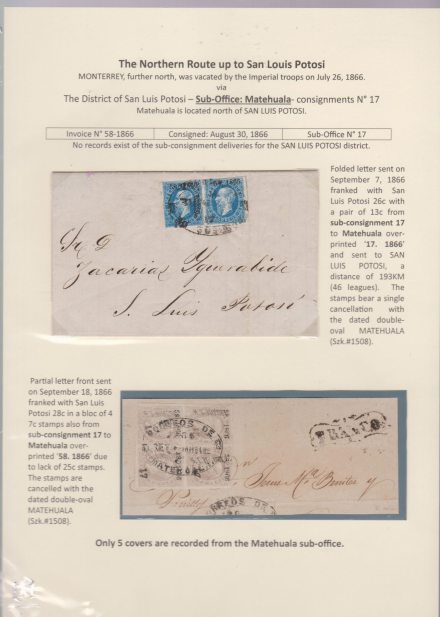 The Northern Route up to San Louis Potosi
MONTERREY, further north, was vacated by the Imperial troops on July 26, 1866.
via
The District of San Luis Potosi – Sub-Office: Matehuala- consignments N° 17
Matehuala is located north of SAN LUIS POTOSI.
Invoice N° 58-1866
Consigned: August 30, 1866
Sub-Office N° 17
No records exist of the sub-consignment deliveries for the SAN LUIS POTOSI district.
Folded letter sent on
September 7, 1866
franked with San
Luis Potosi 26c with
a pair of 13c from
sub-consignment 17
to Matehuala over-
printed '17. 1866'
and sent to SAN
LUIS POTOSI, a
distance of 193KM
(46 leagues). The
stamps bear a single
cancellation with
the dated double-
oval MATEHUALA
(Szk.#1508).
Sr. D.
Zacarias
S. Luis Potosí
Partial letter front sent
on September 18, 1866
franked with San Luis
Potosi 28c in a bloc of 4
7c stamps also from
sub-consignment 17 to
Matehuala over-
printed '58. 1866' due
to lack of 25c stamps.
The stamps are
cancelled with the
dated double-oval
MATEHUALA
(Szk.#1508).
CORREOS DE
MATEHUALA
17
FRANCO
Benites y
Only 5 covers are recorded from the Matehuala sub-office.